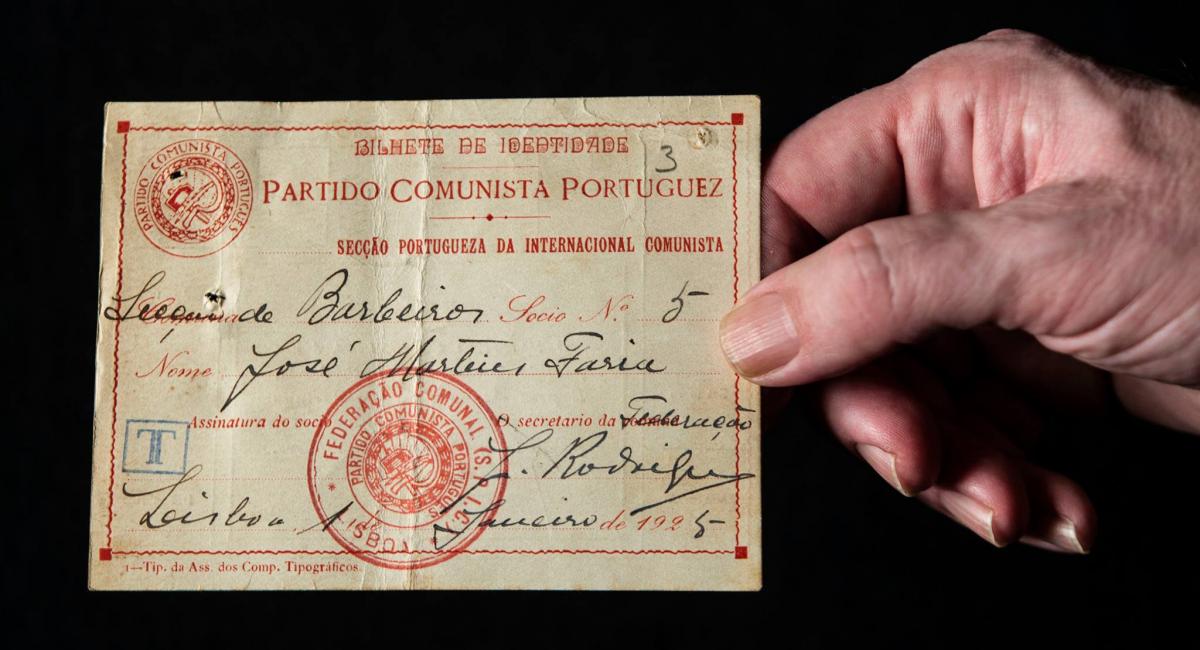 BILHETE DE IDENTIDADE
3
PARTIDO COMUNISTA PORTUGUEZ
PARTIDO COMUNISTA PORTUGUÊS
SECÇÃO PORTUGUEZA DA INTERNACIONAL COMUNISTA
de Barbeiros Socio N.º 5
Nome José Martins Faria
Assinatura do socio O secretario da Federação
T
J. Rodrigues
FEDERAÇÃO COMUNAL (S. P. I. C.) LISBOA
PARTIDO COMUNISTA PORTUGUÊS
Lisboa 1 de Janeiro de 1925
1—Tip. da Ass. dos Comp. Tipográficos